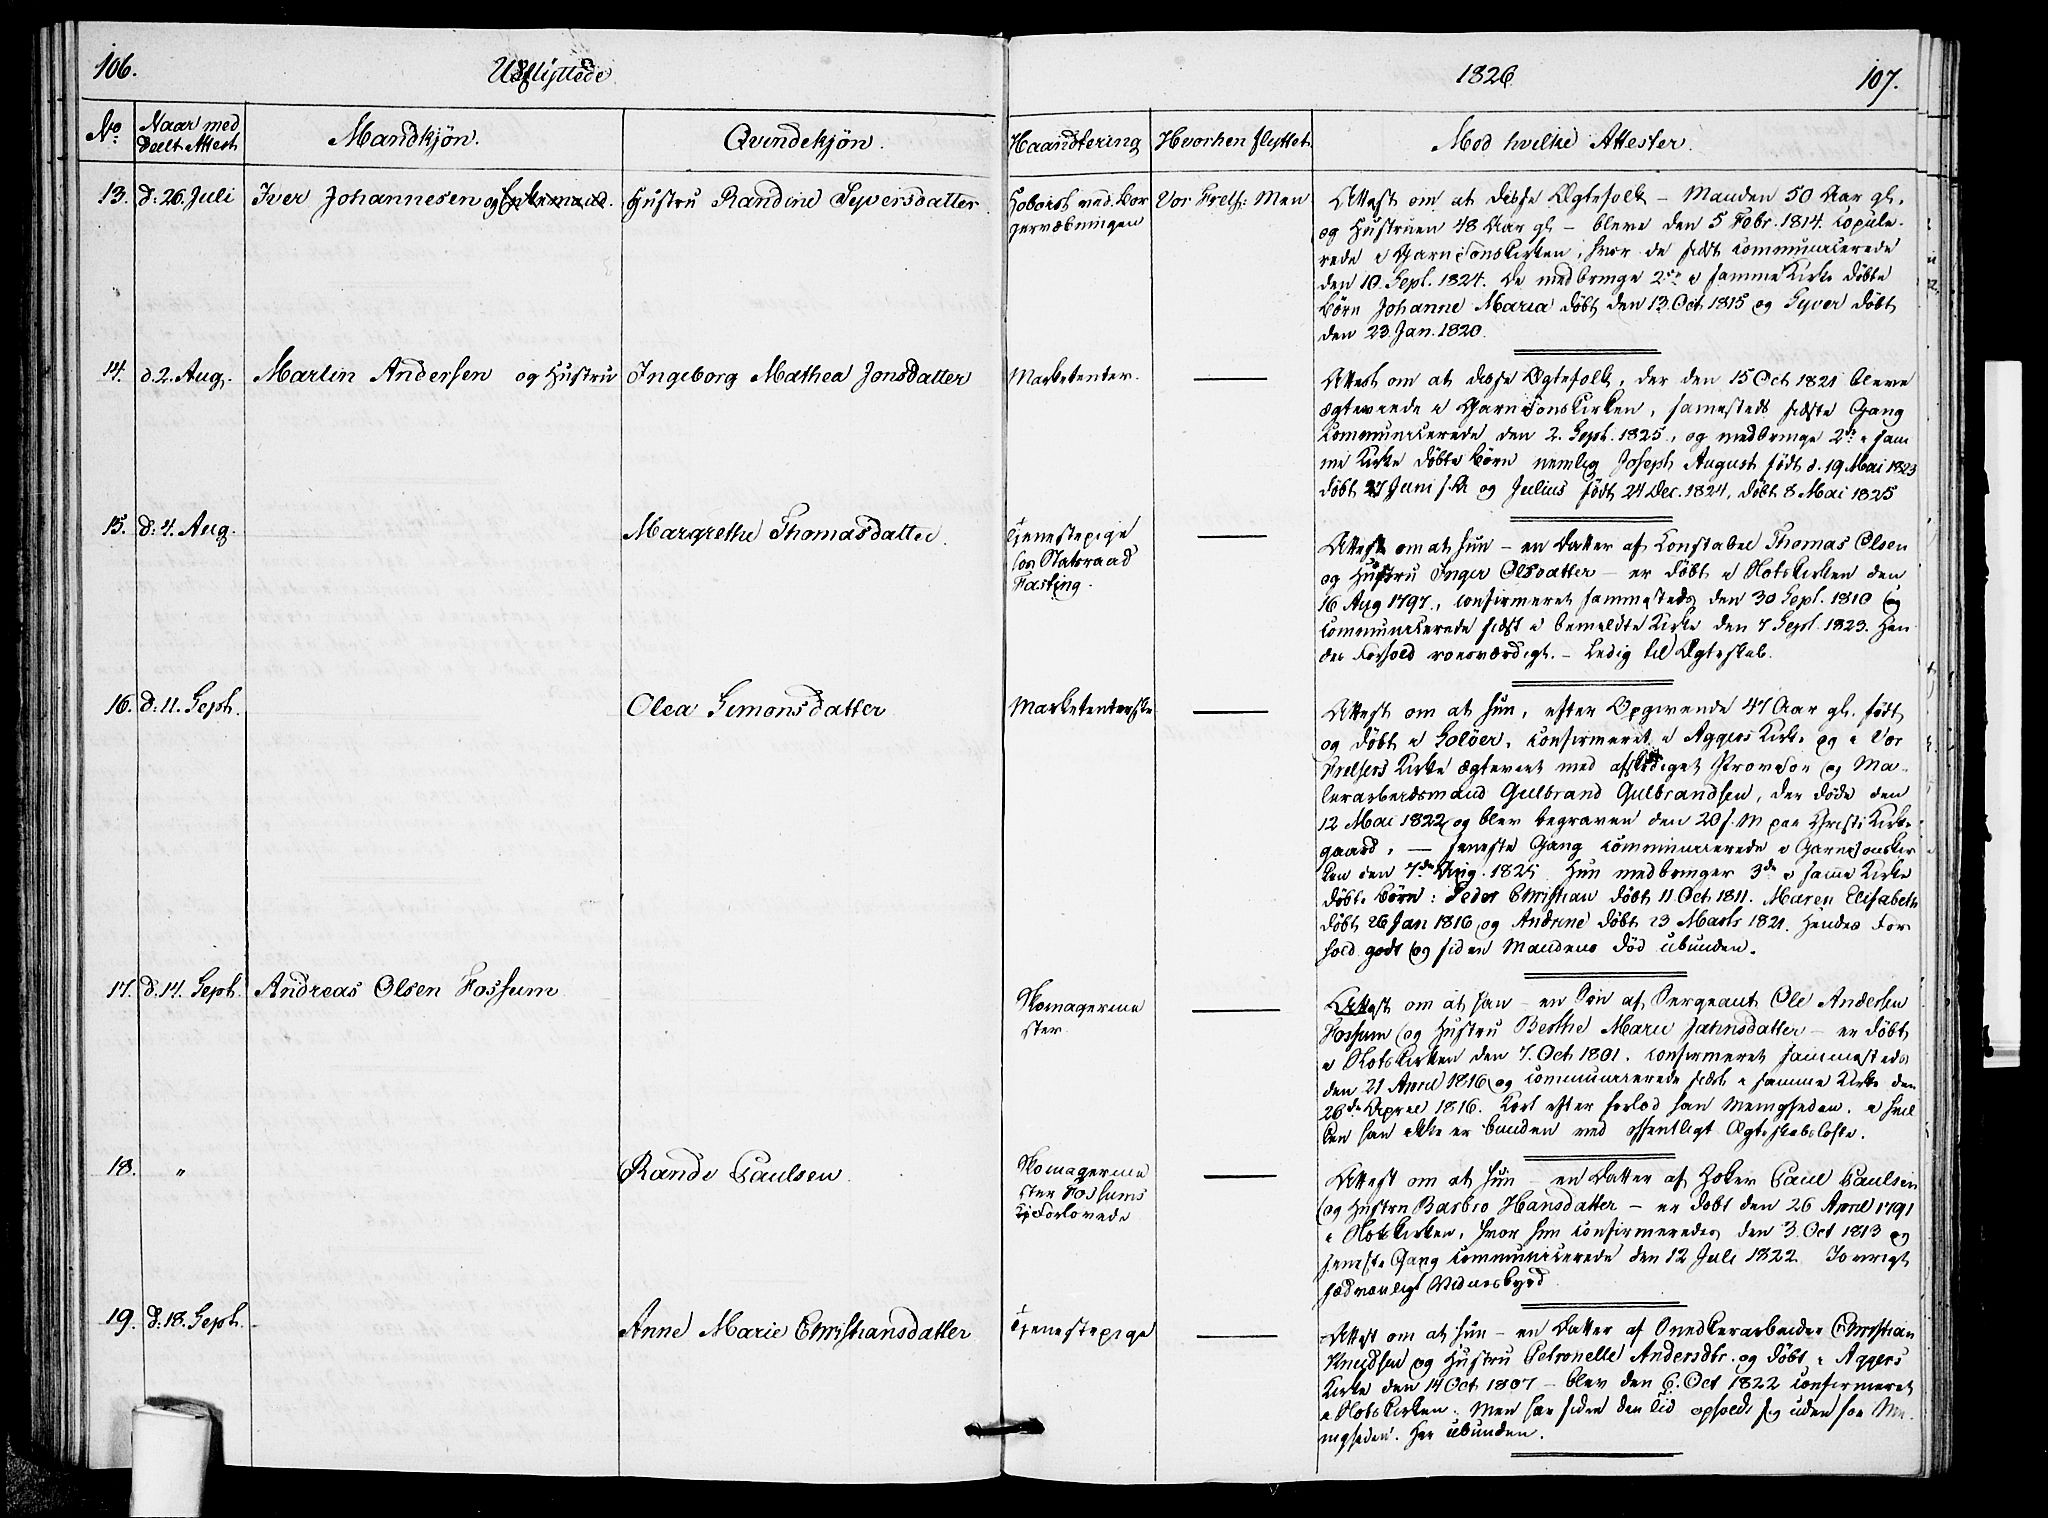 106.
Udflyttede
1826
107.
No.
Naar med
deelt Attest
Mandkjøn.
Qvindekjøn.
Haandtering
Hvorhen flyttet
Mod hvilke Attester.
13. d: 26. Juli Iver Johannesen og Hustru Randine Syversdatter Hoboist ved Bor
gervæbningen
Vor Frels: Men
Attest om at disse Ægtefolk – Manden 50 Aar gl.
og Hustruen 48 Aar gl – bleve den 5 Febr. 1814. Copule-
rede i Garnisonskirken, hvor de sidst communicerede
den 10. Sept. 1824. De medbringe 2de i samme Kirke døbte
Børn Johanne Maria døbt den 13. Oct 1815 og Syver døbt
den 23. Jan. 1820.
14. d. 2. Aug. Martin Andersen og Hustru Ingeborg Mathea Jonsdatter Marketenter. —
Attest om at disse Ægtefolk, der den 15 Oct 1821 bleve
ægteviede i Garnisonskirken, samesteds sidste Gang
communicerede den 2. Sept. 1825, og medbringe 2de i sam
me Kirke døbte Børn nemlig Joseph August født d. 19 Mai 1823
døbt 27 Juni s. A. og Julius født 24 Dec. 1824, døbt 8 Mai 1825
15. d: 4. Aug. Margrethe Thomasdatter. Tjenestepige
hos Statsraad
Fasting. —
Attest om at hun – en Datter af Constabel Thomas Olsen
og Hustru Inger Olsdatter – er døbt i Slotskirken den
16 Aug 1797, confirmeret sammesteds den 30 Sept. 1810 og
communicerede sidst i bemeldte Kirke den 7 Sept. 1823. Hen
des Forhold roesværdigt. – Ledig til Ægteskab.
16. d: 11. Sept. Olea Simonsdatter Marketenterske —
Attest om at hun, efter Opgivende 47 Aar gl. født
og døbt i Soløer, confirmeret i Aggers Kirke og i Vor
Frelsers Kirke ægteviet med afskediget og Ma-
lerarbeidsmand Gulbrand Gulbrandsen, der døde den
12 Mai 1822 og blev begraven den 20 s. M paa Christi Kirke-
gaard, – seneste Gang communicerede i Garnisonskir
ken den 7de Aug. 1825. Hun medbringer 3de i same Kirke
døbte Børn: Peder Christian døbt 11 Oct 1811. Maren Elisabeth
døbt 26 Jan 1816 og Andrine døbt 23 Marts 1821. Hendes For
hold godt og siden Mandens Død ubunden.
17. d. 14. Sept. Andreas Olsen Fossum Skomagerme
ster —
Attest om at han – en Søn af Sergeant Ole Andersen
Fossum og Hustru Berthe Marie datter – er døbt
i Slotskirken den 7. Oct 1801. confirmeret sammesteds
den 21 April 1816 og communicerede sidst i samme Kirke den
26de April 1816. Kort efter forlod han Menigheden, i hvil
ken han ikke er bunden ved offentligt Ægteskabsløfte.
18. " Rande Paulsen. Skomagerme
ster Fossums
Forlovede —
Attest om at hun – en Datter af Høker Paul Paulsen
og Hustru Barbro Hansdatter – er døbt den 26 April 1791
i Slotskirken, hvor hun confirmeredes den 3 Oct 1813 og
seneste Gang communicerede den 12 Juli 1822. Iøvrigt
sædvanligt Vidnesbyrd.
19. d: 18. Sept. Anne Marie Christiansdatter Tjenestepige —
Attest om at hun – en Datter af Snedkerarbeider Christian
Knudsen og Hustru Petronelle Andersdtr. og døbt i Aggers
Kirke den 14 Oct 1807 – blev den 6. Oct 1822 confirmeret
i Slotskirken. Men har siden den Tid opholdt sig uden for Me-
nigheden. Her ubunden.